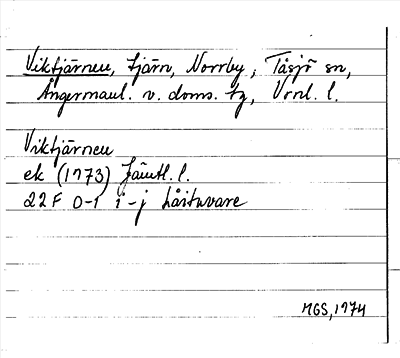 Viktjärnen, tjärn, Norrby, Tåsjö sn,
Ångermanl. v. doms. tg, Vrnl. l.
Viktjärnen
ek (1973) Jämtl. l.
22F 0-1 i-j Låitavare
MGS, 1974